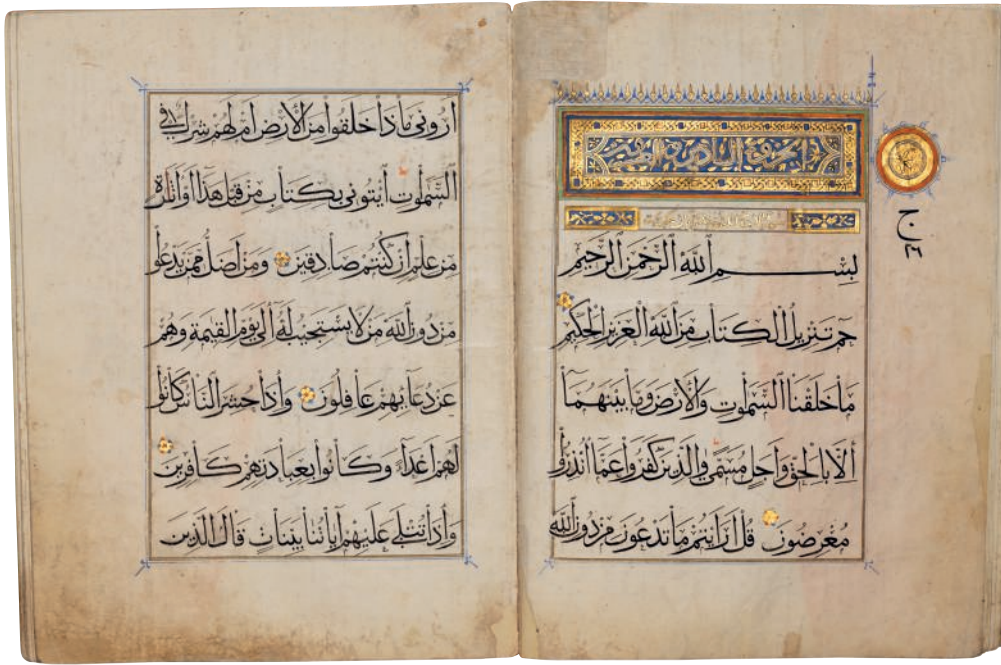 الجزو السادس
ج
بسم الله الرحمن الرحيم
حم تنزيل الكتاب من الله العزيز الحكيم
ما خلقنا السموت والارض وما بينهما
الا بالحق واجل مسمى والذين كفروا عما انذروا
معرضون قل ارايتم ما تدعون من دون الله
اروني ماذا خلقوا من الارض ام لهم شرك في
السموت ايتوني بكتاب من قبل هذا او اثارة
من علم ان كنتم صادقين ومن اضل ممن يدعوا
من دون الله من لا يستجيب له الى يوم القيمة وهم
عن دعايهم غافلون واذا حشر الناس كانوا
لهم اعداء وكانوا بعبادتهم كافرين
واذا تتلى عليهم اياتنا بينات قال الذين